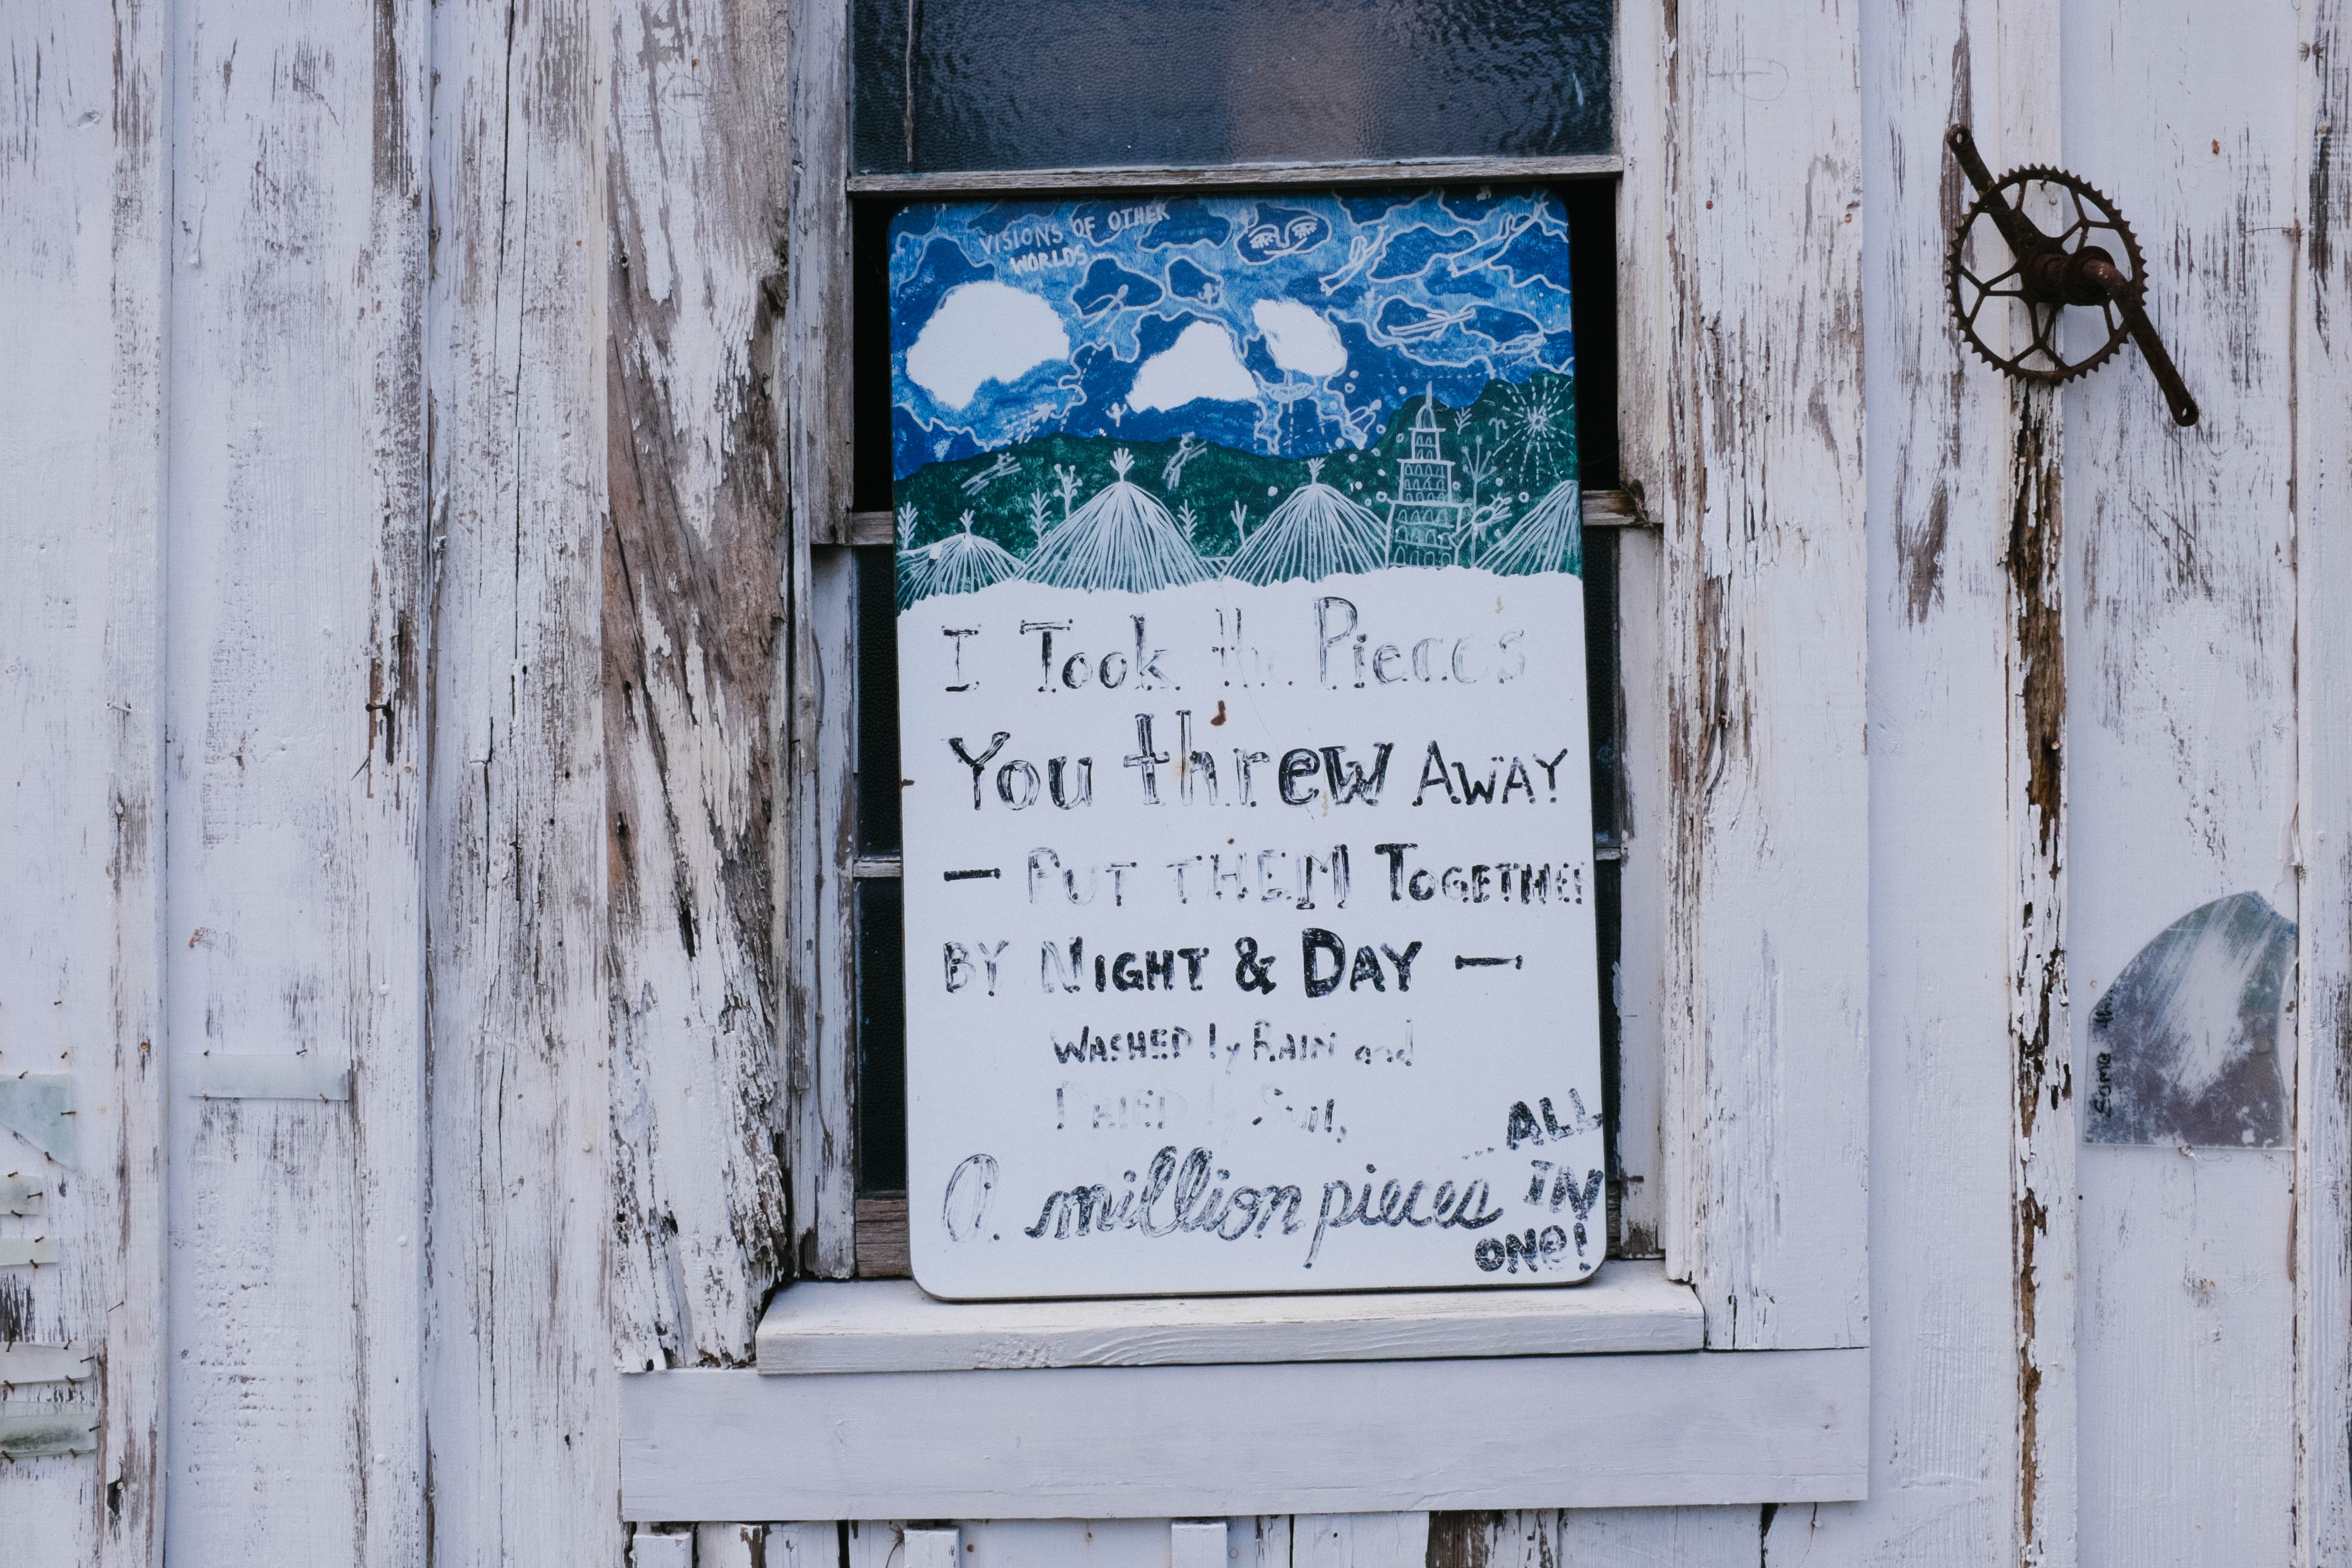 VISIONS OF OTHER
WORLDS
I Took the Pieces
You threw AWAY
— PUT THEM TOGETHER
BY NIGHT & DAY —
WASHED by RAIN and
DRIED by Sun,
A million pieces
... ALL
IN
ONE!
Some